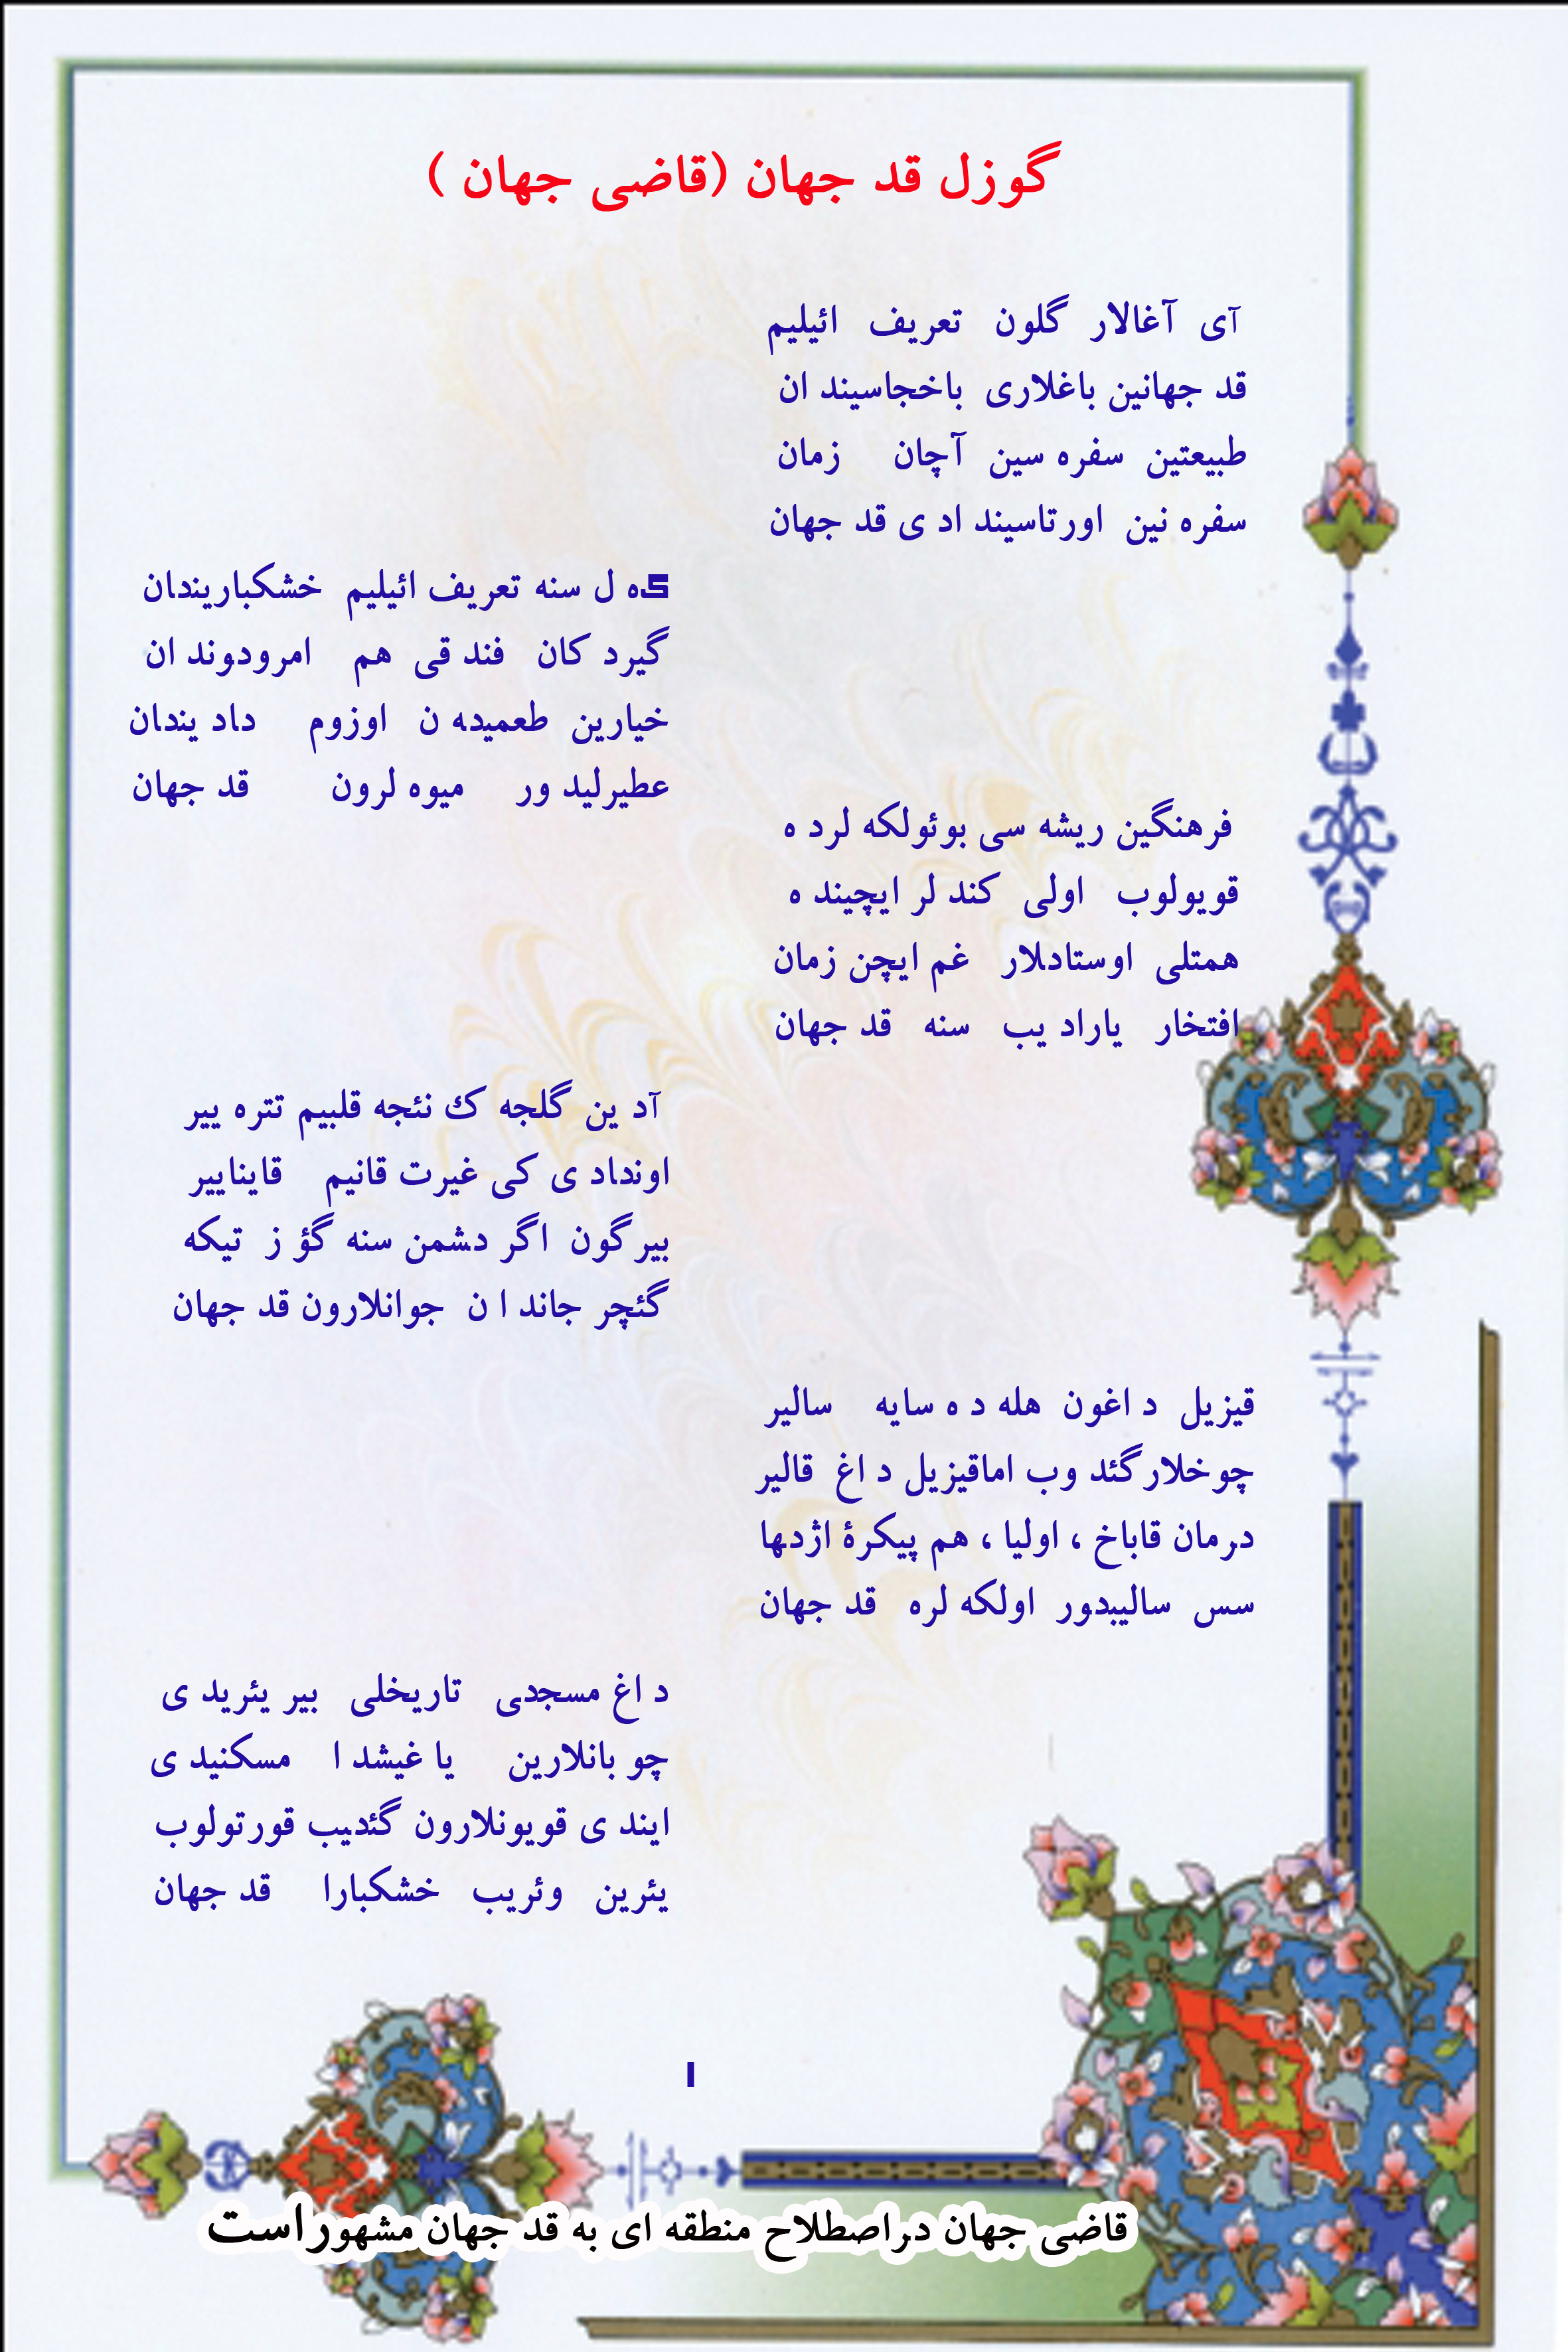 گوزل قد جهان (قاضی جهان )
آی آغالار گلون تعریف ائیلیم
قد جهانین باغلاری باخجاسیند ان
طبیعتین سفره سین آچان زمان
سفره نین اورتاسیند اد ی قد جهان
گه ل سنه تعریف ائیلیم خشکباریندان
گیرد کان فند قی هم امرودوند ان
خیارین طعمیده ن اوزوم داد یندان
عطیرلید ور میوه لرون قد جهان
فرهنگین ریشه سی بوئولکه لرد ه
قویولوب اولی کند لر ایچیند ه
همتلی اوستادلار غم ایچن زمان
افتخار یاراد یب سنه قد جهان
آد ین گلجه ک نئجه قلبیم تتره ییر
اونداد ی کی غیرت قانیم قاینایپر
بیرگون اگر دشمن سنه گؤ ز تیکه
گئچر جاند ا ن جوانلارون قد جهان
قیزیل د اغون هله د ه سایه سالیر
چوخلارگئد وب اماقیزیل د اغ قالیر
درمان قاباخ ، اولیا ، هم پیکرۀ اژدها
سس سالیبدور اولکه لره قد جهان
د اغ مسجدی تاریخلی بیر یئرید ی
چو بانلارین یا غیشد ا مسکنید ی
ایند ی قویونلارون گئدیب قورتولوب
یئرین وئریب خشکبارا قد جهان
۱
قاضی جهان دراصطلاح منطقه ای به قد جهان مشهوراست